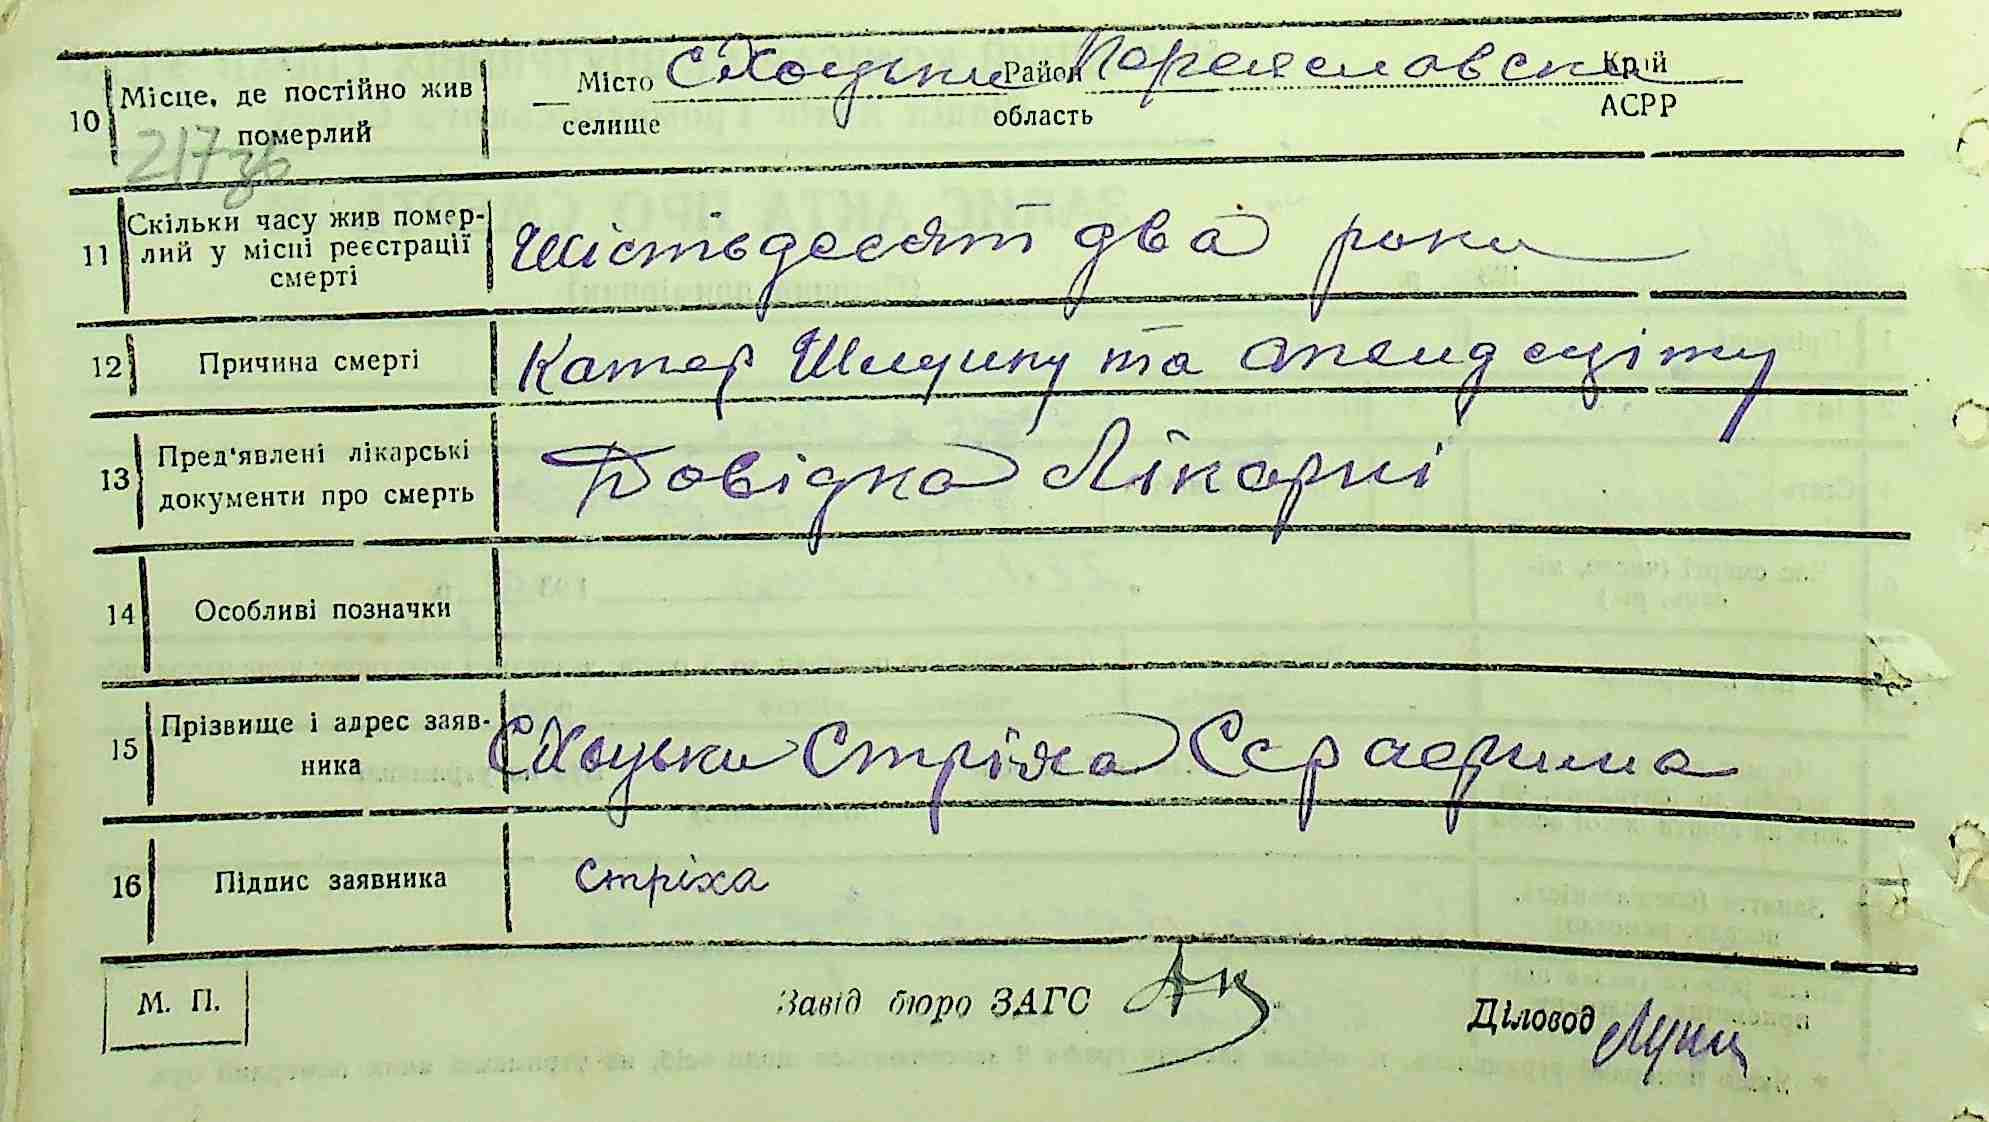 10 Місце, де постійно жив померлий Місто селище с Хоцьки Район область Переяславский Край АСРР
217зв
11 Скільки часу жив помер-
лий у місці реєстрації
смерті
Шістьдесят два роки
12 Причина смерті Катар Шлунку та апендеціту
13 Пред'явлені лікарські
документи про смерть
Довідка Лікарні
14 Особливі позначки
15 Прізвище і адрес заяв-
ника
с Хоцьки Стріха Серафима
16 Підпис заявника Стріха
М. П. Завід бюро ЗАГС Діловод